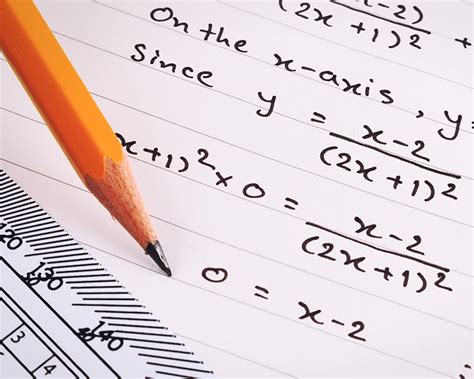 x-2)
(2x+1)² +
On the x-axis, y
Since y = x-2
(2x+1)²
x+1)² × 0 = x-2
(2x+1)²
0 = x-2
20
130
140
3
4